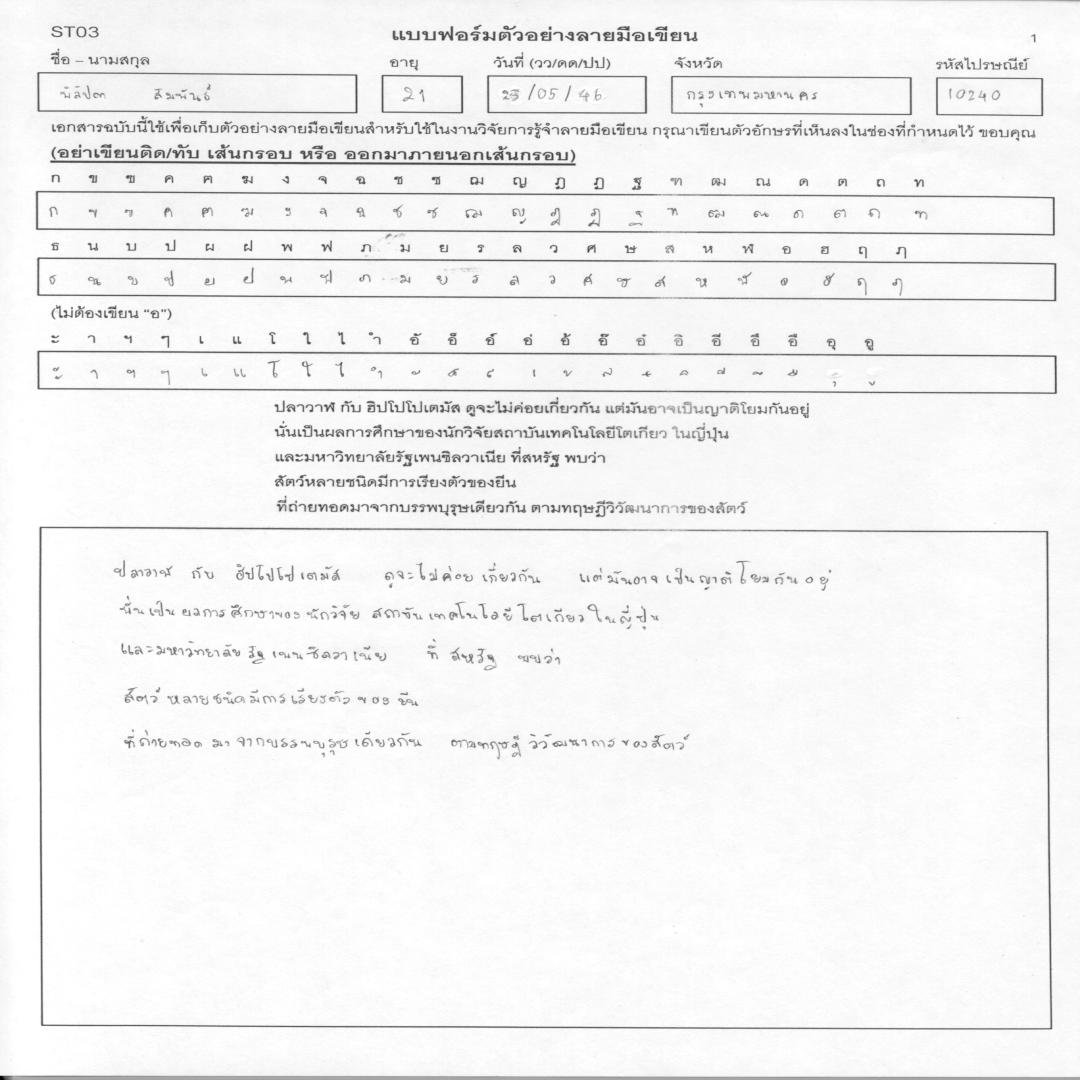 ST03
แบบฟอร์มตัวอย่างลายมือเขียน
1
ชื่อ – นามสกุล อายุ วันที่ (วว/ดด/ปป) จังหวัด รหัสไปรษณีย์
สัมพันธ์ 21 /05/46 กรุงเทพมหานคร 10240
เอกสารฉบับนี้ใช้เพื่อเก็บตัวอย่างลายมือเขียนสำหรับใช้ในงานวิจัยการรู้จำลายมือเขียน กรุณาเขียนตัวอักษรที่เห็นลงในช่องที่กำหนดไว้ ขอบคุณ
(อย่าเขียนติด/ทับ เส้นกรอบ หรือ ออกมาภายนอกเส้นกรอบ)
ก ข ฃ ค ฅ ฆ ง จ ฉ ช ซ ฌ ญ ฎ ฏ ฐ ฑ ฒ ณ ด ต ถ ท
ก ข ฃ ค ฅ ฆ ง จ ฉ ช ซ ฌ ญ ฎ ฏ ฐ ฑ ฒ ณ ด ต ถ ท
ธ น บ ป ผ ฝ พ ฟ ภ ม ย ร ล ว ศ ษ ส ห ฬ อ ฮ ฤ ฦ
ธ น บ ป ผ ฝ พ ฟ ภ ม ย ร ล ว ศ ษ ส ห ฬ อ ฮ ฤ ฦ
(ไม่ต้องเขียน “อ”)
ะ า ฯ ๆ เ แ โ ใ ไ ำ อั อ็ อ์ อ่ อ้ อ๊ อ๋ อิ อี อึ อื อุ อู
ะ า ฯ ๆ เ แ โ ใ ไ ำ ั ็ ์ ่ ้ ๊ ๋ ิ ี ึ ื ุ ู
ปลาวาฬ กับ ฮิปโปโปเตมัส ดูจะไม่ค่อยเกี่ยวกัน แต่มันอาจเป็นญาติโยมกันอยู่
นั่นเป็นผลการศึกษาของนักวิจัยสถาบันเทคโนโลยีโตเกียว ในญี่ปุ่น
และมหาวิทยาลัยรัฐเพนซิลวาเนีย ที่สหรัฐ พบว่า
สัตว์หลายชนิดมีการเรียงตัวของยีน
ที่ถ่ายทอดมาจากบรรพบุรุษเดียวกัน ตามทฤษฎีวิวัฒนาการของสัตว์
ปลาวาฬ กับ ฮิปโปโปเตมัส ดูจะไม่ค่อยเกี่ยวกัน แต่มันอาจเป็นญาติโยมกันอยู่
นั่นเป็นผลการศึกษาของนักวิจัย สถาบันเทคโนโลยีโตเกียว ในญี่ปุ่น
และมหาวิทยาลัยรัฐเพนซิลวาเนีย ที่ สหรัฐ พบว่า
สัตว์หลายชนิดมีการเรียงตัวของยีน
ที่ถ่ายทอดมาจากบรรพบุรุษเดียวกัน ตามทฤษฎีวิวัฒนาการของสัตว์